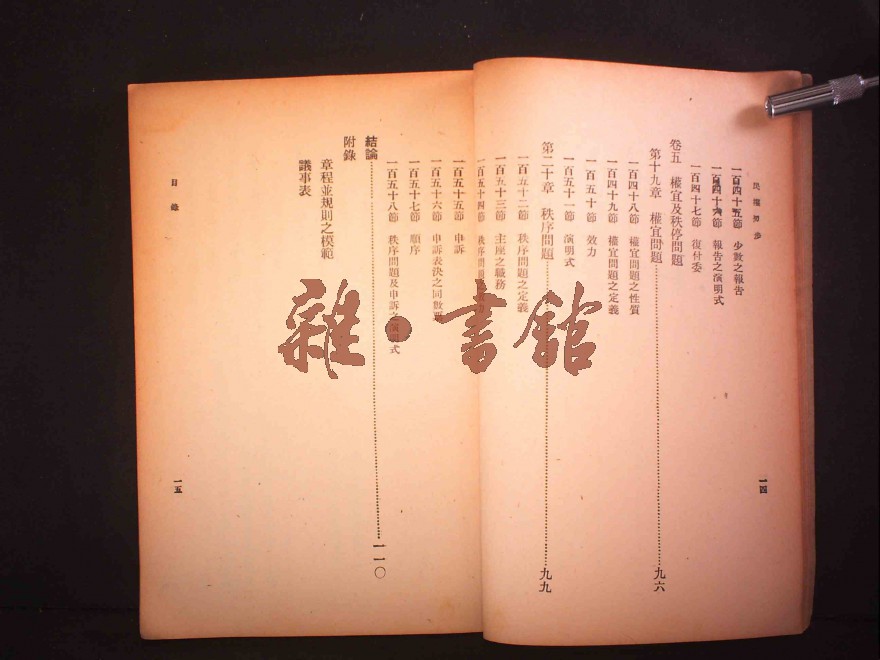 民權初步
一百四十五節 少數之報告
一百四十六節 報告之演明式
一百四十七節 復付委
卷五 權宜及秩序問題
第十九章 權宜問題……九六
一百四十八節 權宜問題之性質
一百四十九節 權宜問題之定義
一百五十節 效力
一百五十一節 演明式
第二十章 秩序問題……九九
一百五十二節 秩序問題之定義
一百五十三節 主座之職務
一百五十四節 秩序問題
一四
一百五十五節 申訴
一百五十六節 申訴表決之同數
一百五十七節 順序
一百五十八節 秩序問題及申訴之演明式
結論……一一〇
附錄
章程並規則之模範
議事表
目錄
一五
雜·書館